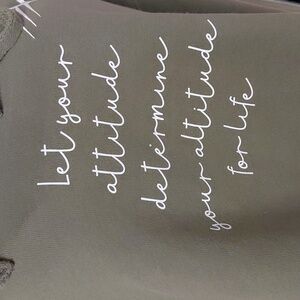 Let your
attitude
determine
your altitude
for life